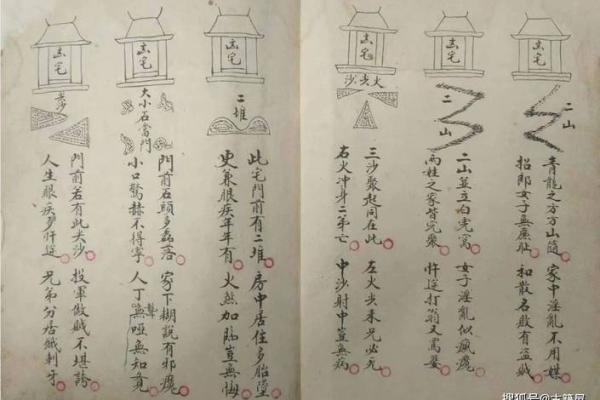 本宅
二山
青龍之方万山隨
招郎女子無廉耻
家中淫亂不用媒
和散名敗有盜賊
本宅
二山
二山並立白虎窩
両姓之家皆完聚
女子淫亂似瘋魔
忤逆打翁又罵婆
本宅
沙尖火
三沙聚起同在此
右火冲身二弟亡
左火尖来兄必亡
中沙射中豈無病
本宅
二堆
此宅門前有二堆
更兼眼疾年年有
房中居住多胎墜
火煞加臨豈無悔
本宅
大小石當門
門前石頭多磊落
小口驚赫不得寧
家下糊説有邪魔
人丁聾啞無知覚
本宅
尖沙
門前若有此尖沙
人生眼疾多忤逆
投軍做賊不堪誇
兄弟分居紙剌牙
搜狐号@古籍屋